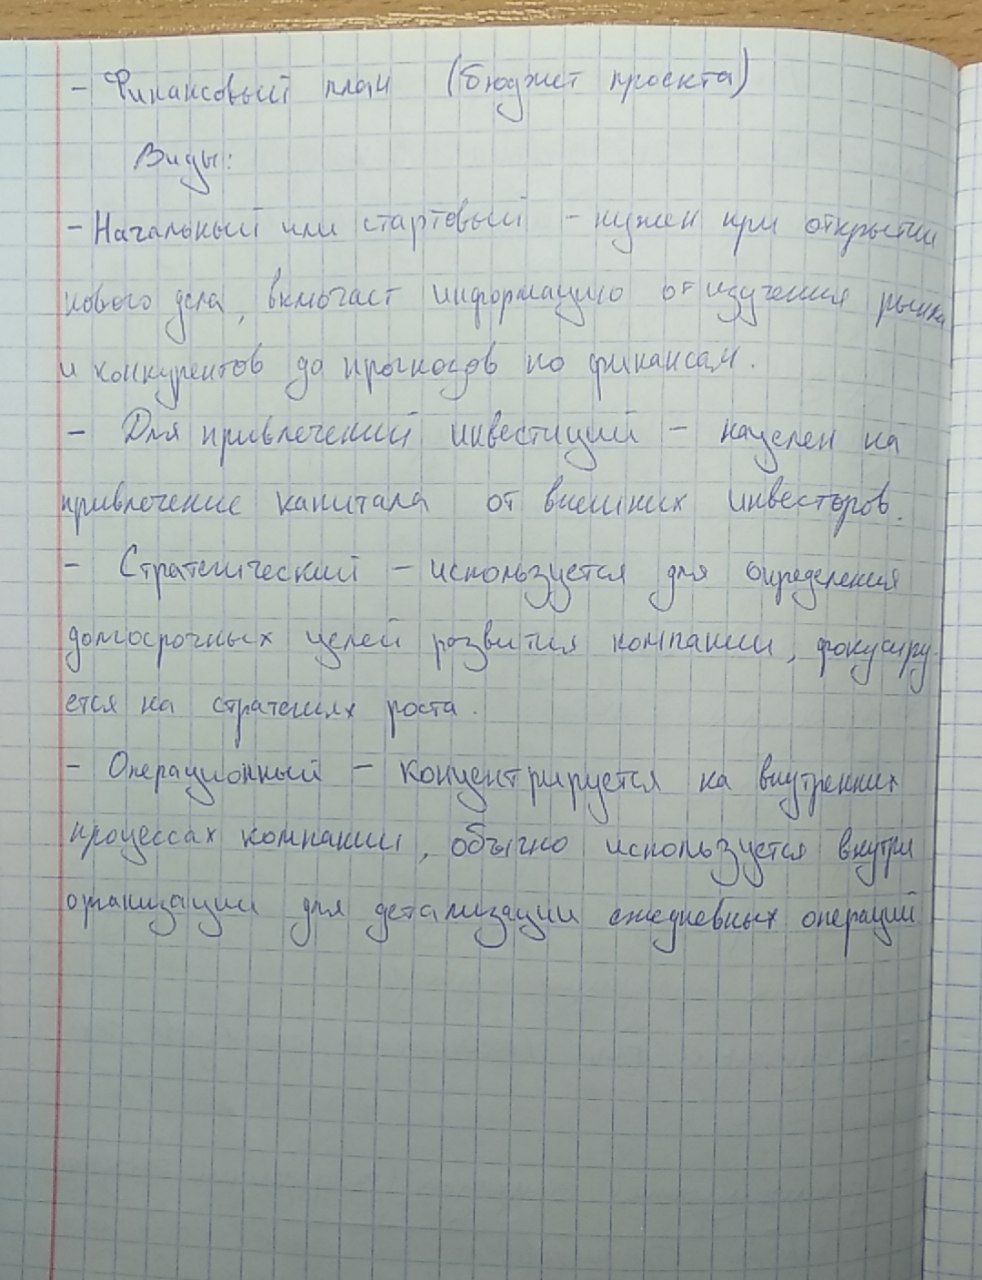 - Финансовый план (бюджет проекта)
Виды:
- Начальный или стартовый - нужен при открытии
нового дела, включает информацию от изучения рынка
и конкурентов до прогнозов по финансам.
- Для привлечений инвестиций - нацелен на
привлечение капитала от внешних инвесторов.
- Стратегический - используется для определения
долгосрочных целей развития компании, фокусиру-
ется на стратегиях роста.
- Операционный - концентрируется на внутренних
процессах компании, обычно используется внутри
организации для детализации ежедневных операций